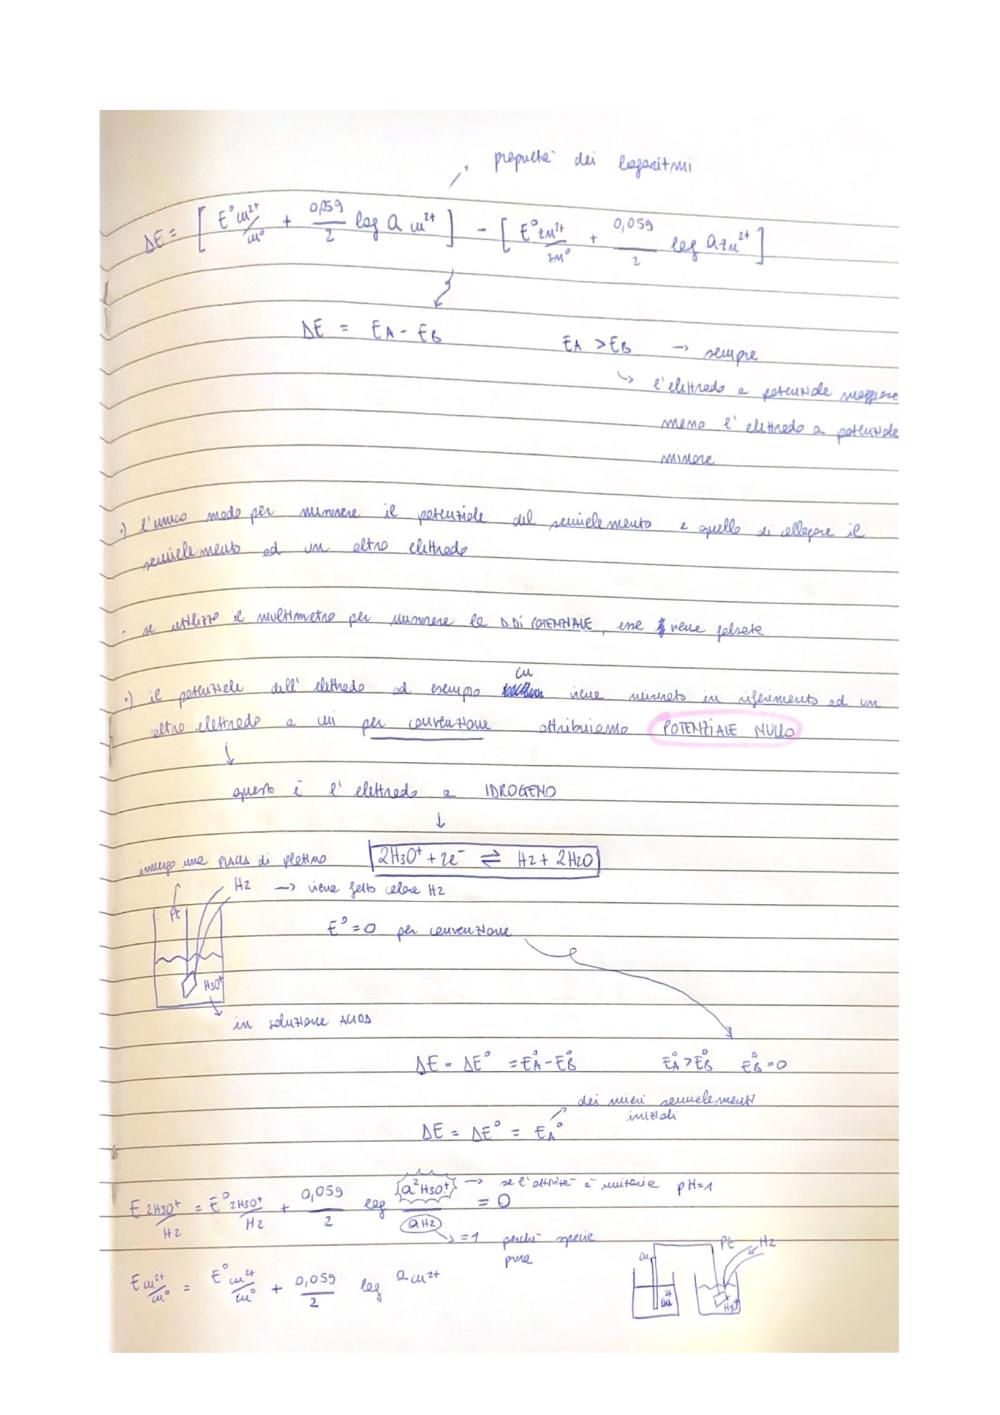 proprietà dei logaritmi
ΔE = [ E° cu²⁺/cu° + 0,059/2 log a cu²⁺ ] - [ E° zn²⁺/zn° + 0,059/2 log a zn²⁺ ]
ΔE = EA - EB
EA > EB → sempre
↳ l'elettrodo a potenziale maggiore
meno l'elettrodo a potenziale
minore
•) l'unico modo per misurare il potenziale del semielemento e quello di collegare il
semielemento ad un altro elettrodo
- se utilizzo il multimetro per misurare la D.Di POTENZIALE, essa viene falsata
•) il potenziale dell' elettrodo ad esempio cu viene misurato in riferimento ad un
altro elettrodo a cui per convenzione attribuiamo POTENZIALE NULLO
↓
questo è l' elettrodo a IDROGENO
↓
immergo una PLACCA di platino
2H3O⁺ + 2e⁻ ⇌ H2 + 2H2O
H2 → viene fatto
H2
Pt
E° = 0 per convenzione
H3O⁺
in soluzione ACIDA
ΔE = ΔE° = E°A - E°B
E°A > E°B E°B = 0
dei miei semielementi
iniziali
ΔE = ΔE° = EA°
E 2H3O⁺/H2 = E° 2H3O⁺/H2 + 0,059/2 log a²H3O⁺/aH2 = 0
→ se l'attività è unitaria pH=1
→ =1 perché specie
pura
cu Pt H2
E cu²⁺/cu° = E° cu²⁺/cu° + 0,059/2 log a cu²⁺
cu²⁺ H3O⁺